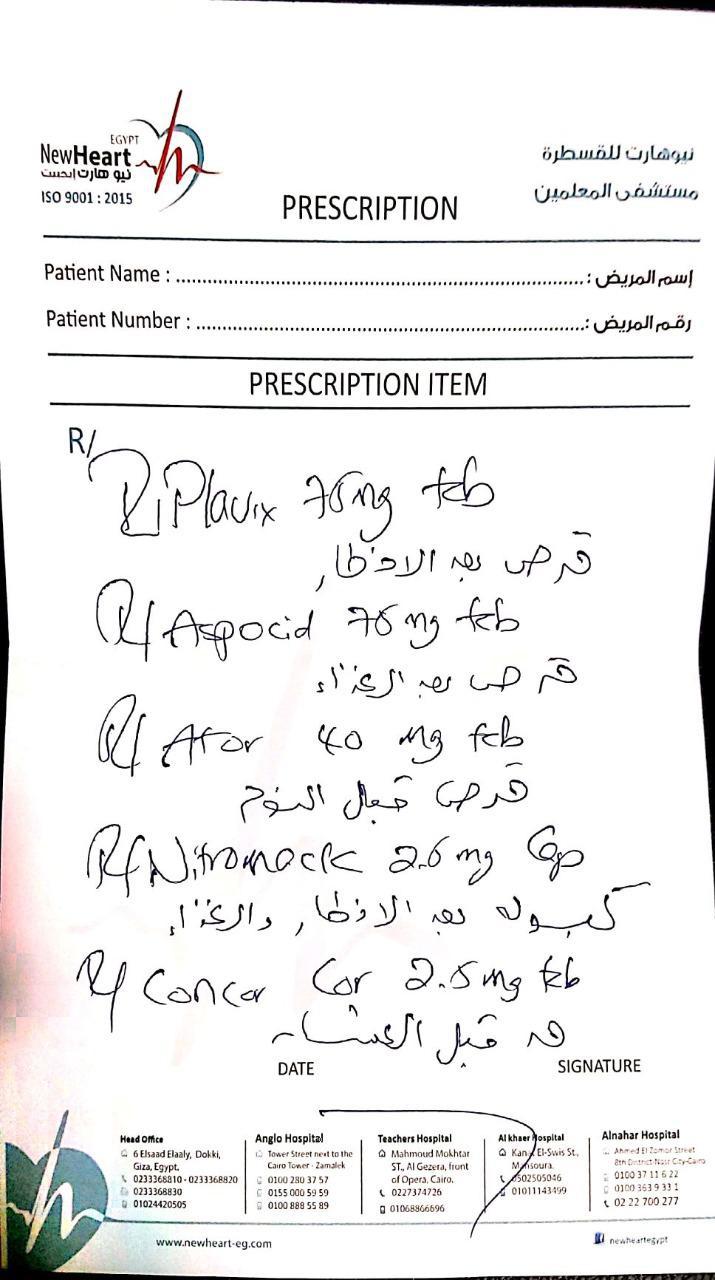 EGYPT
NewHeart
نيو هارت إيجيبت
ISO 9001 : 2015
نيوهارت للقسطرة
مستشفى المعلمين
PRESCRIPTION
Patient Name : إسم المريض :
Patient Number : رقم المريض :
PRESCRIPTION ITEM
R/
R/ Plavix 75 mg tab
قرص بعد الافطار
R/ Aspocid 75 mg tab
قرص بعد الغذاء
R/ Ator 40 mg tab
قرص قبل النوم
R/ Nitromack 2.5 mg Cap
كبسوله بعد الافطار والغذاء
R/ Concor Cor 2.5 mg tab
قبل العشاء
DATE SIGNATURE
Head Office
6 Elsaad Elaaly, Dokki,
Giza, Egypt.
0233368810 - 0233368820
0233368830
01024420505
Anglo Hospital
Tower Street next to the
Cairo Tower - Zamalek
0100 280 37 57
0155 000 59 59
0100 888 55 89
Teachers Hospital
Mahmoud Mokhtar
ST., Al Gezera, front
of Opera, Cairo.
0227374726
01068866696
Al khaer Hospital
El-Swis St.,
Mansoura.
0502505046
01011143499
Alnahar Hospital
Ahmed El Zomor Street
8th District-Nasr City-Cairo
0100 37 11 6 22
0100 363 9 33 1
02 22 700 277
www.newheart-eg.com
newheartegypt